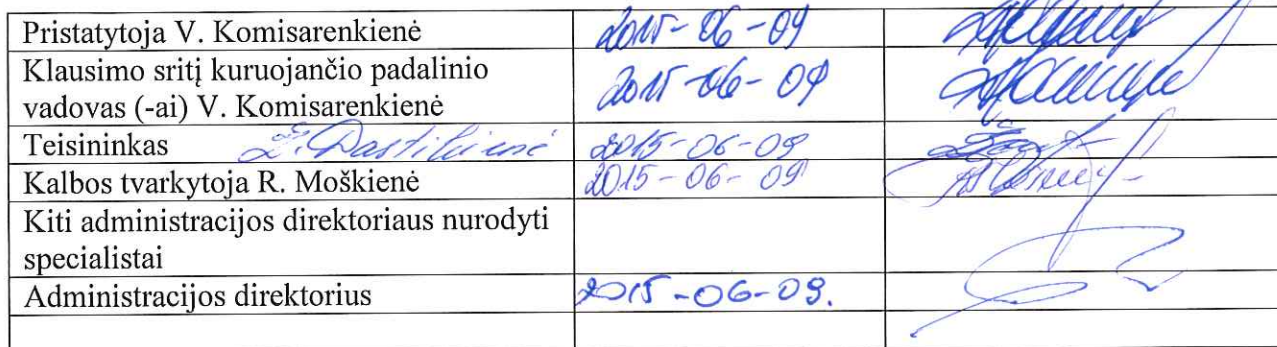 Pristatytoja V. Komisarenkienė 2015-06-09
Klausimo sritį kuruojančio padalinio
vadovas (-ai) V. Komisarenkienė 2015-06-09
Teisininkas 2015-06-09
Kalbos tvarkytoja R. Moškienė 2015-06-09
Kiti administracijos direktoriaus nurodyti
specialistai
Administracijos direktorius 2015-06-09.